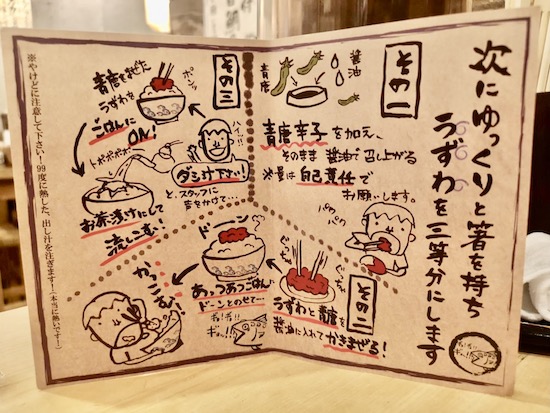 次にゆっくりと箸を持ち
うずわを三等分にします
その一
醤油
青唐
青唐辛子を加え、
そのまま醤油で召し上がる
※量は自己責任で
お願いします。
パク
パク
その二
ぐっちゃ
ぐっちゃ
うずわと青唐を
醤油に入れてかきまぜる!
ドーン
あっつあつごはんに
ドーンとのせて…
かっこむ!
その三
青唐をまぜた
うずわを
ポンッ
ごはんに
ON!
ハイッ!!
ダシ汁下さい!
と、スタッフに
声をかけて…
トポポポポ…
お茶漬けにして
流しこむ。
※やけどに注意して下さい!99度に熱した、出し汁を注ぎます!(本当に熱いです!)